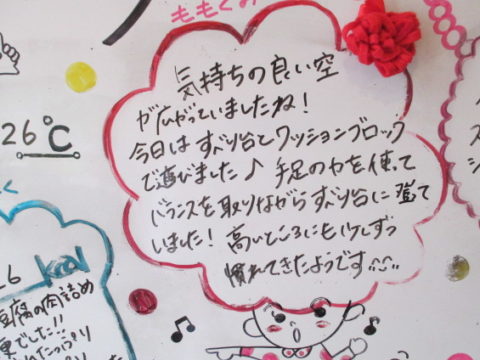 ももぐみ
気持ちの良い空
が広がっていましたね!
今日はすべり台とクッションブロック
で遊びました♪ 手足の力を使って
バランスを取りながらすべり台に登て
いました! 高いところにも少しずつ
慣れてきたようです
26℃
26
豆腐の肉詰め